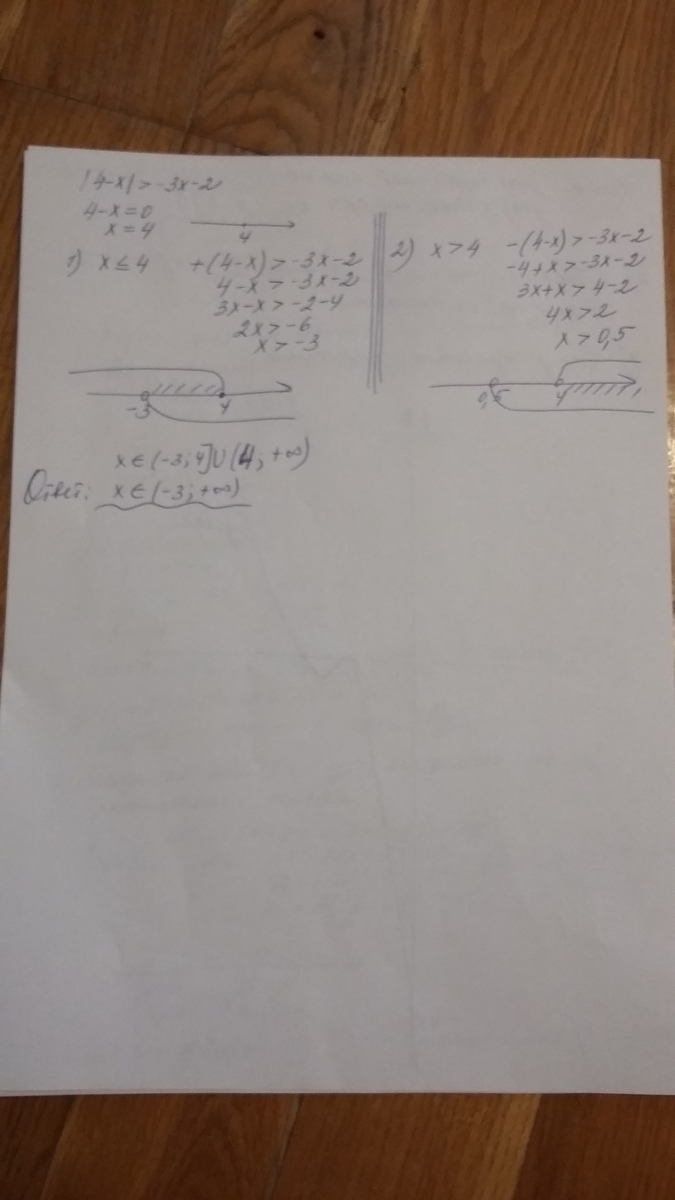 |4-x|>-3x-2
4-x=0
x=4
4
1) x≤4 +(4-x)>-3x-2
4-x>-3x-2
3x-x>-2-4
2x>-6
x>-3
-3 4
2) x>4 -(4-x)>-3x-2
-4+x>-3x-2
3x+x>4-2
4x>2
x>0,5
0,5 4
x∈(-3;4]∪(4;+∞)
Ответ: x∈(-3;+∞)